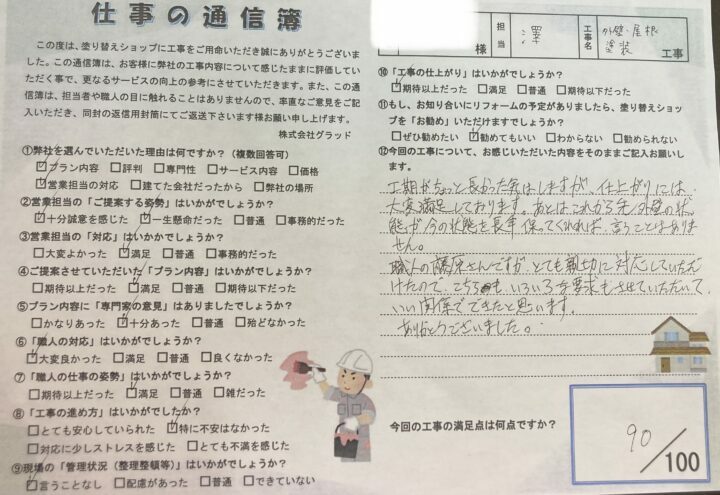 仕事の通信簿
この度は、塗り替えショップに工事をご用命いただき誠にありがとうございま
した。この通信簿は、お客様に弊社の工事内容について感じたままに評価してい
ただく事で、更なるサービスの向上の参考にさせていただきます。また、この通
信簿は、担当者や職人の目に触れることはありませんので、率直なご意見をご記
入いただき、同封の返信用封筒にてご返送下さいます様お願い申し上げます。
株式会社グラッド
①弊社を選んでいただいた理由は何ですか？（複数回答可）
☑プラン内容 □評判 □専門性 □サービス内容 □価格
☑営業担当の対応 □建てた会社だったから □弊社の場所
②営業担当の「ご提案する姿勢」はいかがでしたか？
☑十分誠意を感じた ☑一生懸命だった □普通 □事務的だった
③営業担当の「対応」はいかかでしたか？
□大変よかった ☑満足 □普通 □事務的だった
④ご提案させていただいた「プラン内容」はいかがでしたか？
□期待以上だった ☑満足 □普通 □期待以下だった
⑤プラン内容に「専門家の意見」はありましたでしょうか？
□かなりあった ☑十分あった □普通 □殆どなかった
⑥「職人の対応」はいかがでしたでしょうか？
☑大変良かった □満足 □普通 □良くなかった
⑦「職人の仕事の姿勢」はいかがでしたでしょうか？
□期待以上だった ☑満足 □普通 □雑だった
⑧「工事の進め方」はいかがでしたか？
□とても安心していられた ☑特に不安はなかった
□対応に少しストレスを感じた □とても不満を感じた
⑨現場の「管理状況（整理整頓等）」はいかがでしょうか？
☑言うことなし □配慮があった □普通 □できていない
様 担当 澤 工事名 外壁・屋根塗装 工事
⑩「工事の仕上がり」はいかがでしょうか？
☑期待以上だった □満足 □普通 □期待以下だった
⑪もし、お知り合いにリフォームの予定がありましたら、塗り替えショッ
プを「お勧め」いただけますでしょうか？
□ぜひ勧めたい ☑勧めてもいい □わからない □勧められない
⑫今回の工事について、お感じいただいた内容をそのままご記入お願いし
ます。
工期がちょっと長かった気はしますが、仕上がりには
大変満足しております。あとはこれから先、外壁の状
態が今の状態を長年保ってくれれば、言うことはありま
せん。
職人の さんですが、とても親切に対応していただ
けたので、こちらも、いろいろな要求もさせていただいて、
いい関係でできたと思います。
ありがとうございました。
今回の工事の満足点は何点ですか？
90/100